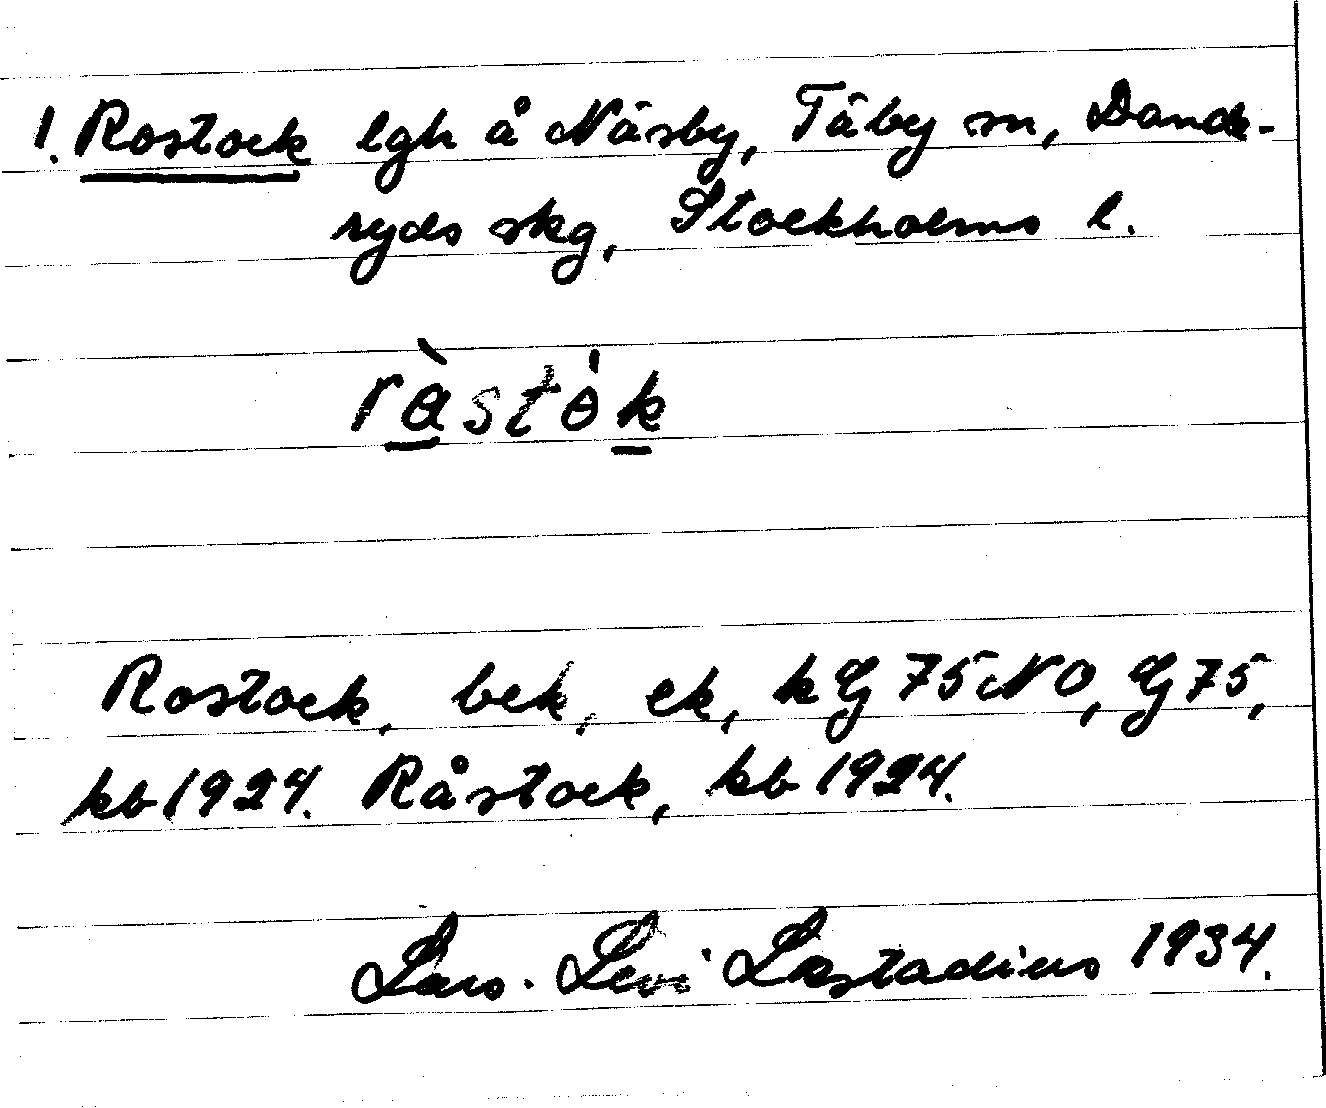 1. Rostock lgh å Näsby, Täby sn, Dande-
ryds skg, Stockholms l.
ràstòk
Rostock, bek, ek, kG 75 NO, G 75,
kb 1924. Råstock, kb 1924.
Lars. Levi Læstadius 1934.